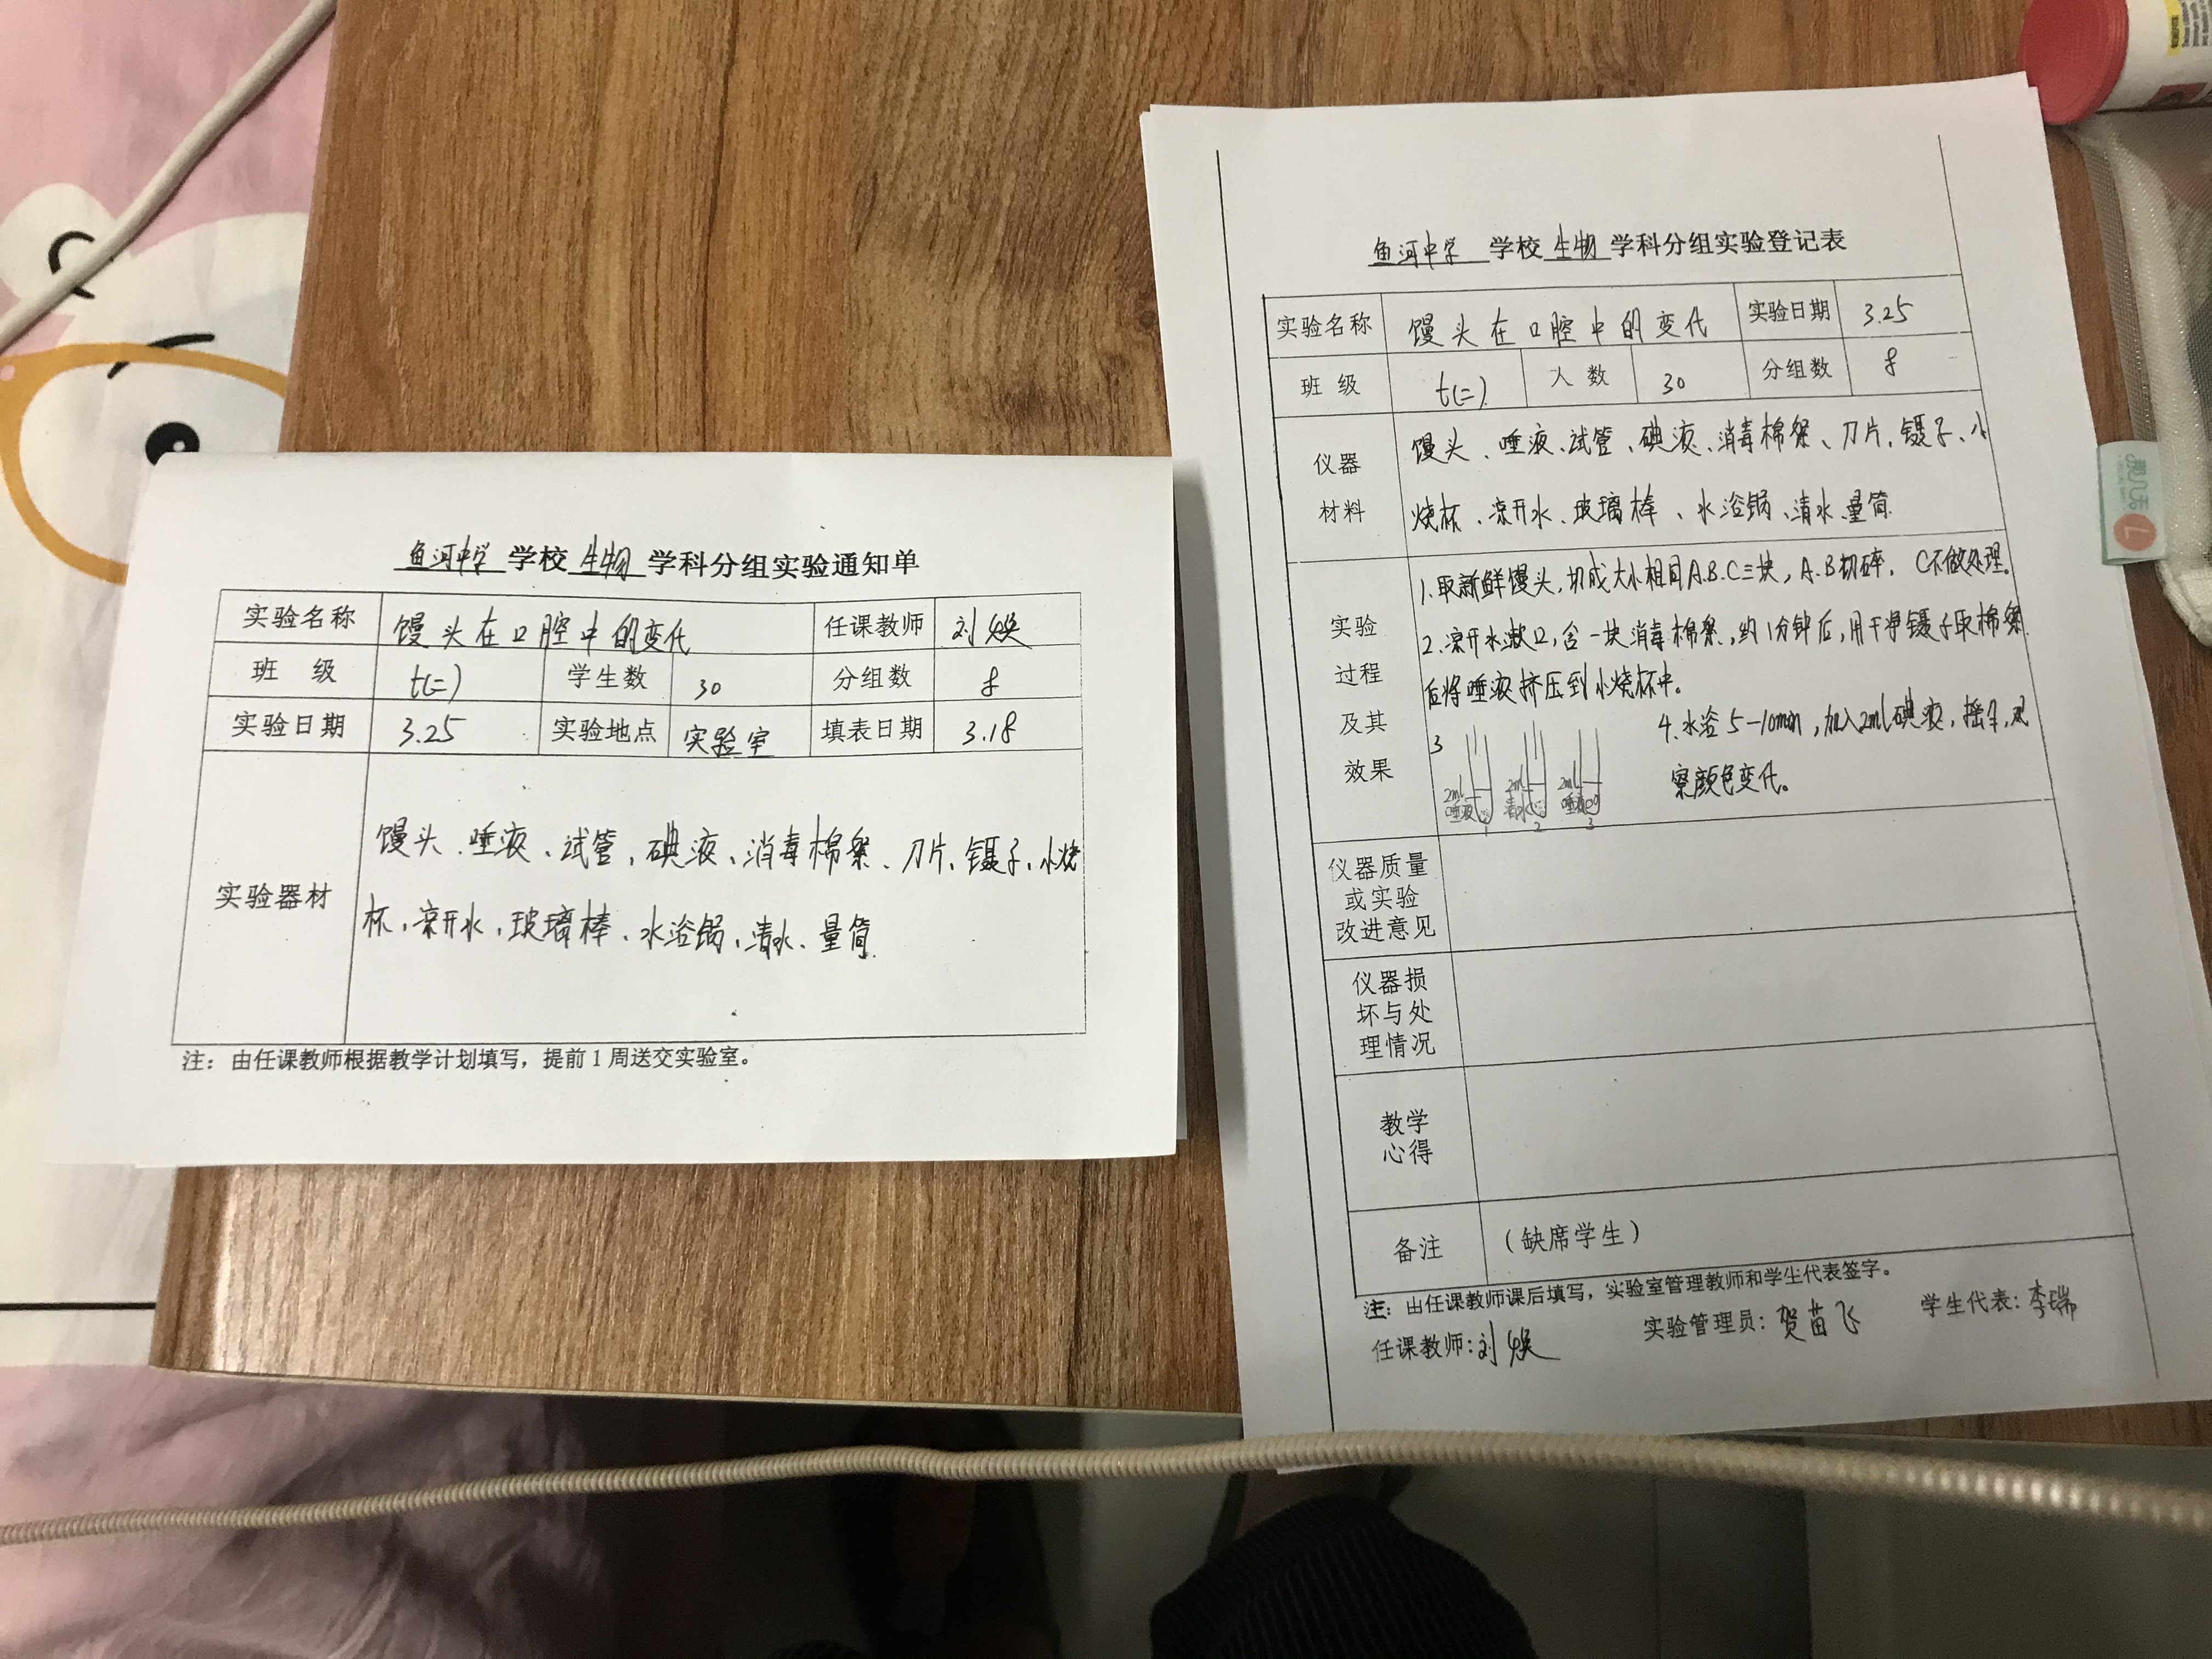 鱼河中学 学校 生物 学科分组实验通知单
实验名称 馒头在口腔中的变化 任课教师 刘焕
班 级 七(二) 学生数 30 分组数 8
实验日期 3.25 实验地点 实验室 填表日期 3.18
实验器材
馒头、唾液、试管、碘液、消毒棉絮、刀片、镊子、小烧
杯、凉开水、玻璃棒、水浴锅、清水、量筒.
注：由任课教师根据教学计划填写，提前1周送交实验室。
鱼河中学 学校 生物 学科分组实验登记表
实验名称 馒头在口腔中的变化 实验日期 3.25
班 级 七(二) 人 数 30 分组数 8
仪器
材料
馒头、唾液、试管、碘液、消毒棉絮、刀片、镊子、小
烧杯、凉开水、玻璃棒、水浴锅、清水、量筒.
实验
过程
及其
效果
1.取新鲜馒头,切成大小相同A.B.C三块,A.B切碎,C不做处理。
2.凉开水漱口,含一块消毒棉絮,约1分钟后,用干净镊子取棉絮
后将唾液挤压到小烧杯中。
3
2ml 唾液 1
2ml 清水 2
2ml 唾液 3
4.水浴5-10min,加入2ml碘液,摇匀,观
察颜色变化。
仪器质量
或实验
改进意见
仪器损
坏与处
理情况
教学
心得
备注 （缺席学生）
注：由任课教师课后填写，实验室管理教师和学生代表签字。
任课教师：刘焕 实验管理员：贺苗飞 学生代表：李瑞